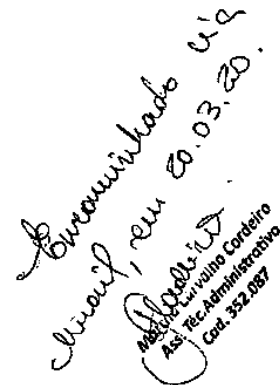 Encaminhado via
email, em 20.03.20.
Carvalho Cordeiro
Ass. Téc. Administrativo
Cad. 352.087